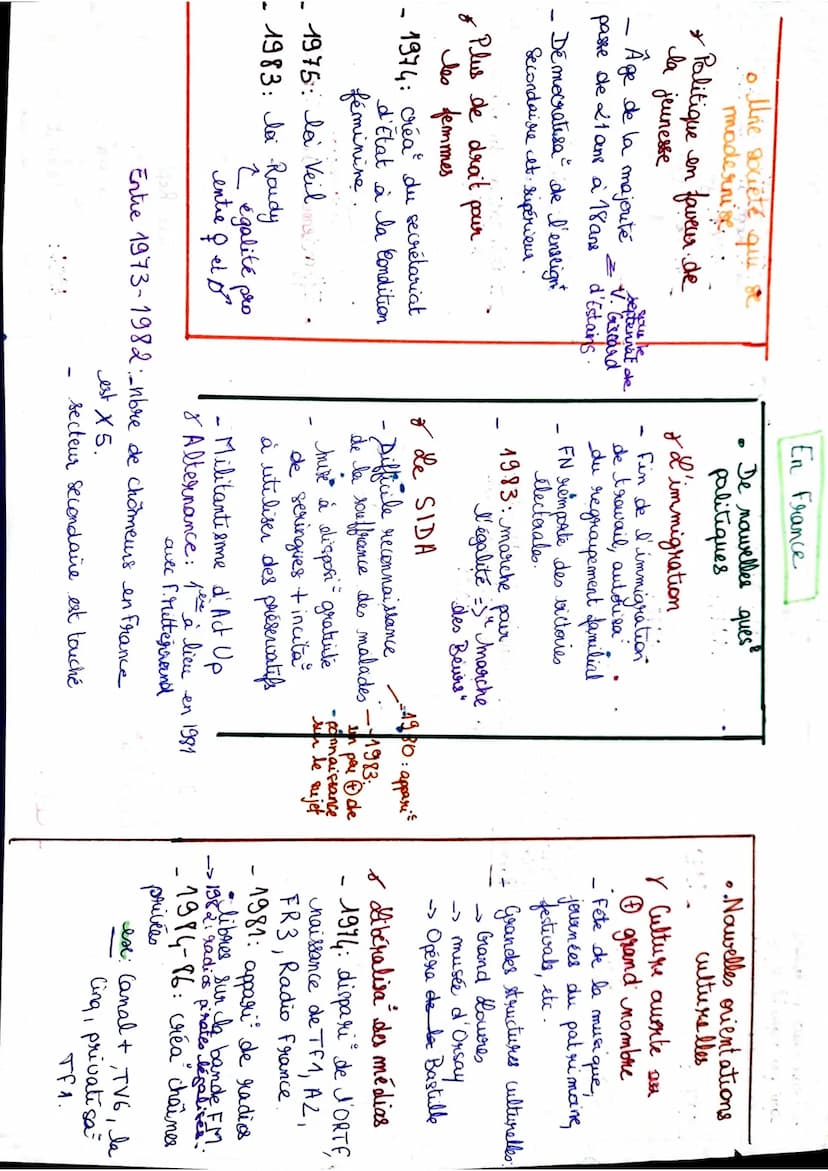 En France
o Une société qui se
modernise
* Politique en faveur de
la jeunesse
- Âge de la majorité
passe de 21 ans à 18 ans
= sous le
septennat de
V. Giscard
d'Estaing.
- Démocratisaº de l'enseignt
secondaire et supérieur.
* Plus de droit pour
les femmes
- 1974: créaº du secrétariat
d'État à la Condition
féminine.
- 1975: loi Veil
- 1983: loi Roudy
↳ égalité pro
entre ♀ et ♂
• De nouvelles quesº
politiques
* L'immigration
- Fin de l'immigration
de travail, autorisaº
du regroupement familial
- FN remporte des victoires
électorales.
- 1983: marche pour
l'égalité => "marche
des Beurs"
* Le SIDA
- 1980: appariº
- Difficile reconnaissance
de la souffrance des malades
- 1983:
un peu ⊕ de
connaissance
sur le sujet
- mise à disposiº gratuite
de seringues + incitaº
à utiliser des préservatifs
- Militantisme d'Act Up
* Alternance: 1ère à lieu en 1981
avec F. Mitterrand
Entre 1973-1982: - nbre de chômeurs en France
est X 5.
- secteur secondaire est touché
• Nouvelles orientations
culturelles
* Culture ouverte au
⊕ grand nombre
- Fête de la musique,
journées du patrimoine,
festivals, etc.
+ Grandes structures culturelles:
-> Grand Louvre
-> musée d'Orsay
-> Opéra de la Bastille
* Libéralisaº des médias
- 1974: dispariº de l'ORTF,
naissance de TF1, A2,
FR3, Radio France.
- 1981: appariº de radios
libres sur la bande FM.
-> 1982: radios pirates légalisées.
- 1984-86: créaº chaînes
privées
ex: Canal+, TV6, la
Cinq, privatisaº
TF1.